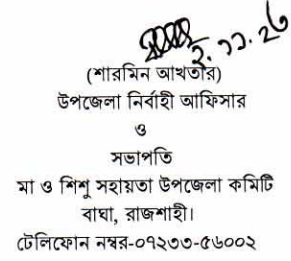 ২.১১.২৬
(শারমিন আখতার)
উপজেলা নির্বাহী আফিসার
ও
সভাপতি
মা ও শিশু সহায়তা উপজেলা কমিটি
বাঘা, রাজশাহী।
টেলিফোন নম্বর-০৭২৩৩-৫৬০০২